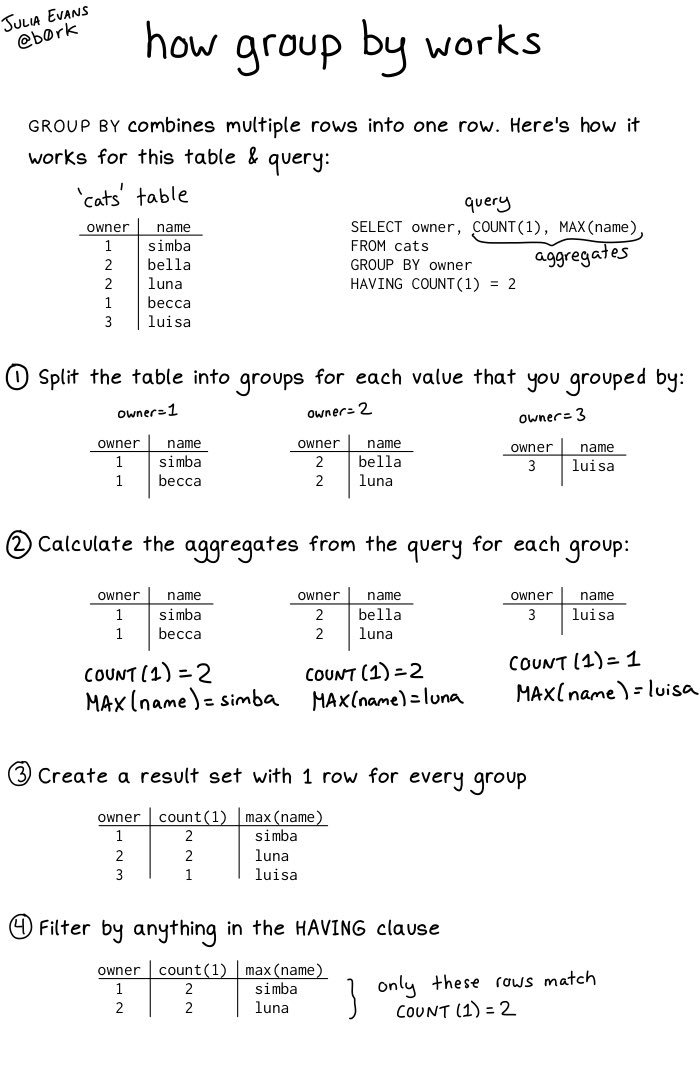 JULIA EVANS
@b0rk
how group by works
GROUP BY combines multiple rows into one row. Here's how it
works for this table & query:
'cats' table
owner name
1 simba
2 bella
2 luna
1 becca
3 luisa
query
SELECT owner, COUNT(1), MAX(name)
FROM cats
GROUP BY owner
HAVING COUNT(1) = 2
aggregates
① Split the table into groups for each value that you grouped by:
owner=1 owner=2 owner=3
owner name owner name owner name
1 simba 2 bella 3 luisa
1 becca 2 luna
② Calculate the aggregates from the query for each group:
owner name owner name owner name
1 simba 2 bella 3 luisa
1 becca 2 luna
COUNT(1)=2 COUNT(1)=2 COUNT(1)=1
MAX(name)=simba MAX(name)=luna MAX(name)=luisa
③ Create a result set with 1 row for every group
owner count(1) max(name)
1 2 simba
2 2 luna
3 1 luisa
④ Filter by anything in the HAVING clause
owner count(1) max(name)
1 2 simba
2 2 luna
only these rows match
COUNT(1)=2